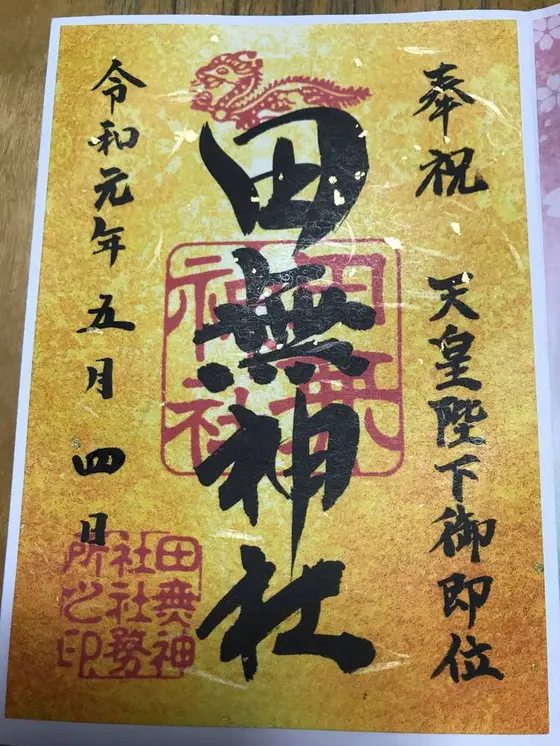 奉祝 天皇陛下御即位
田無神社
田無神社
令和元年五月四日
田無神社社務所之印